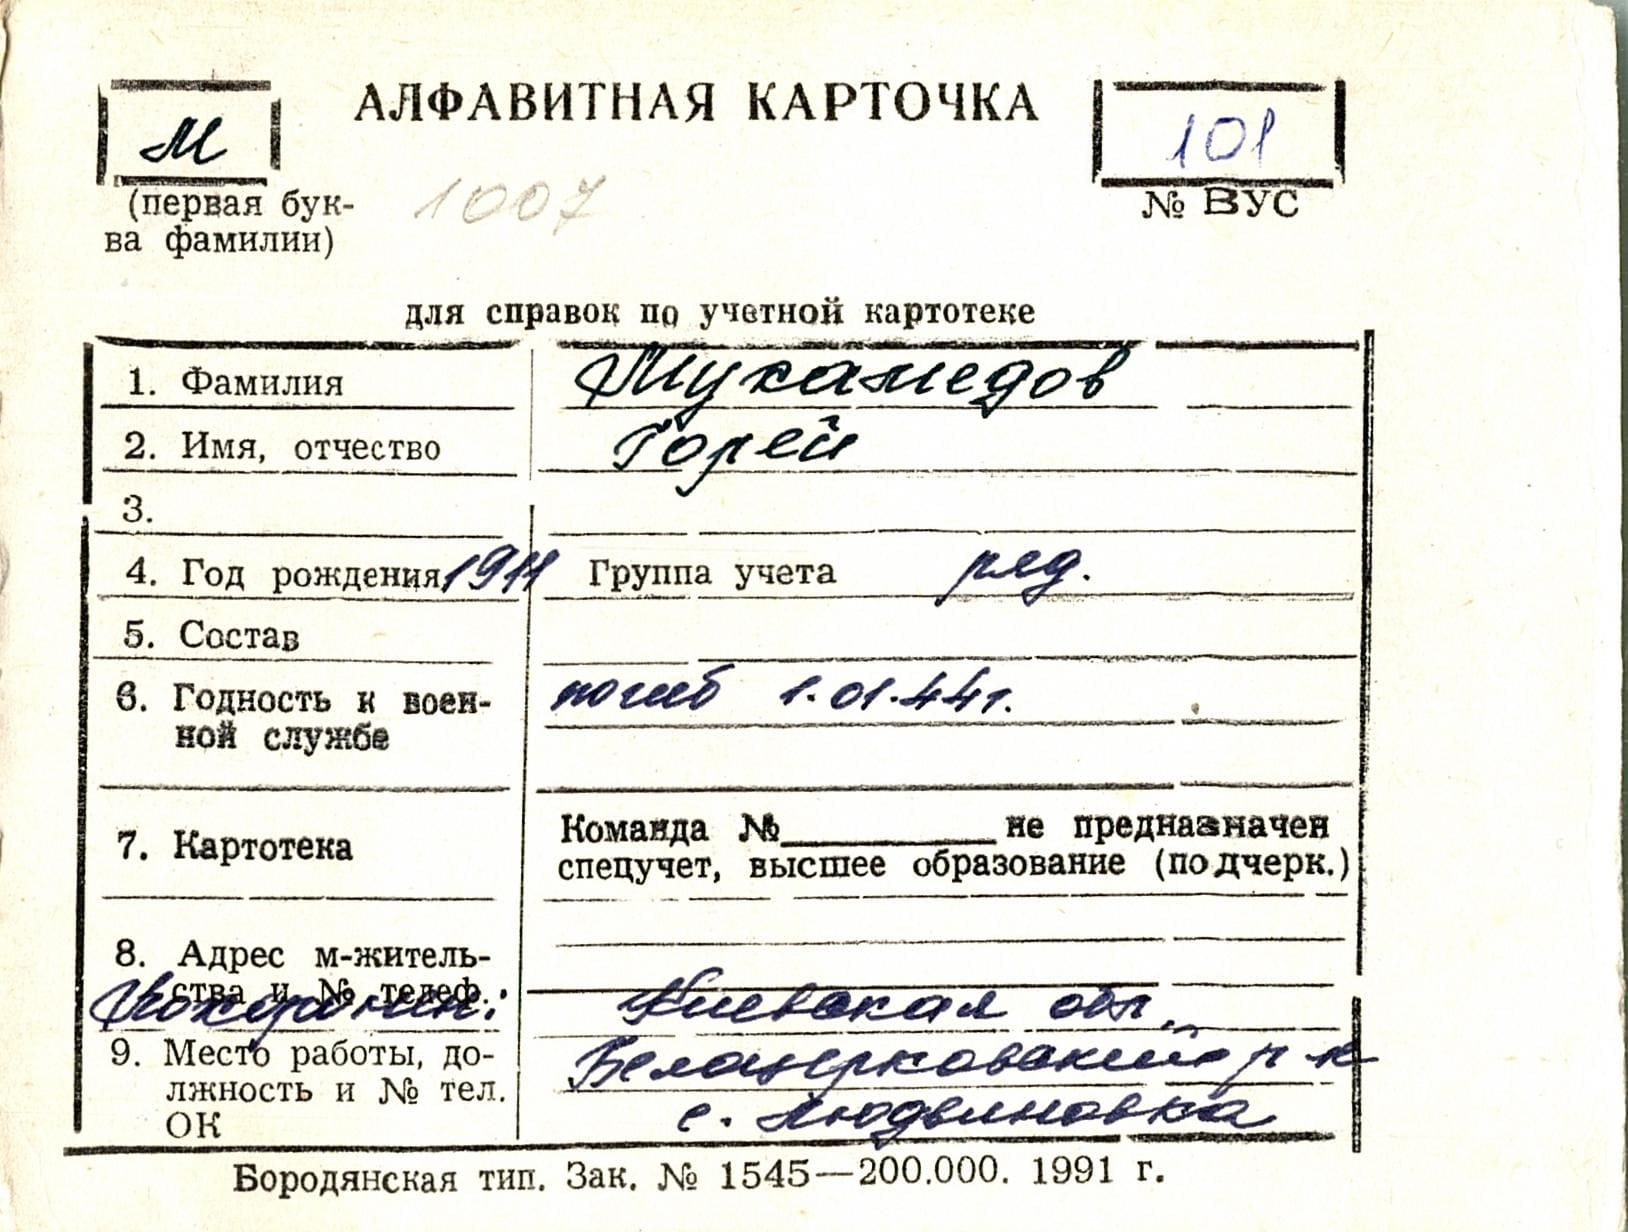 АЛФАВИТНАЯ КАРТОЧКА
М
101
(первая бук-
ва фамилии)
1007
№ ВУС
для справок по учетной картотеке
1. Фамилия Мухамедов
2. Имя, отчество Горей
3.
4. Год рождения 1911 Группа учета ряд.
5. Состав
6. Годность к воен-
ной службе
погиб 1.01.44г.
7. Картотека
Команда №__________не предназначен
спецучет, высшее образование (подчерк.)
8. Адрес м-житель-
ства и № телеф.
Похоронен: Киевская обл.,
9. Место работы, до-
лжность и № тел.
ОК
Белоцерковский р-н
с. Людвиновка
Бородянская тип. Зак. № 1545—200.000. 1991 г.